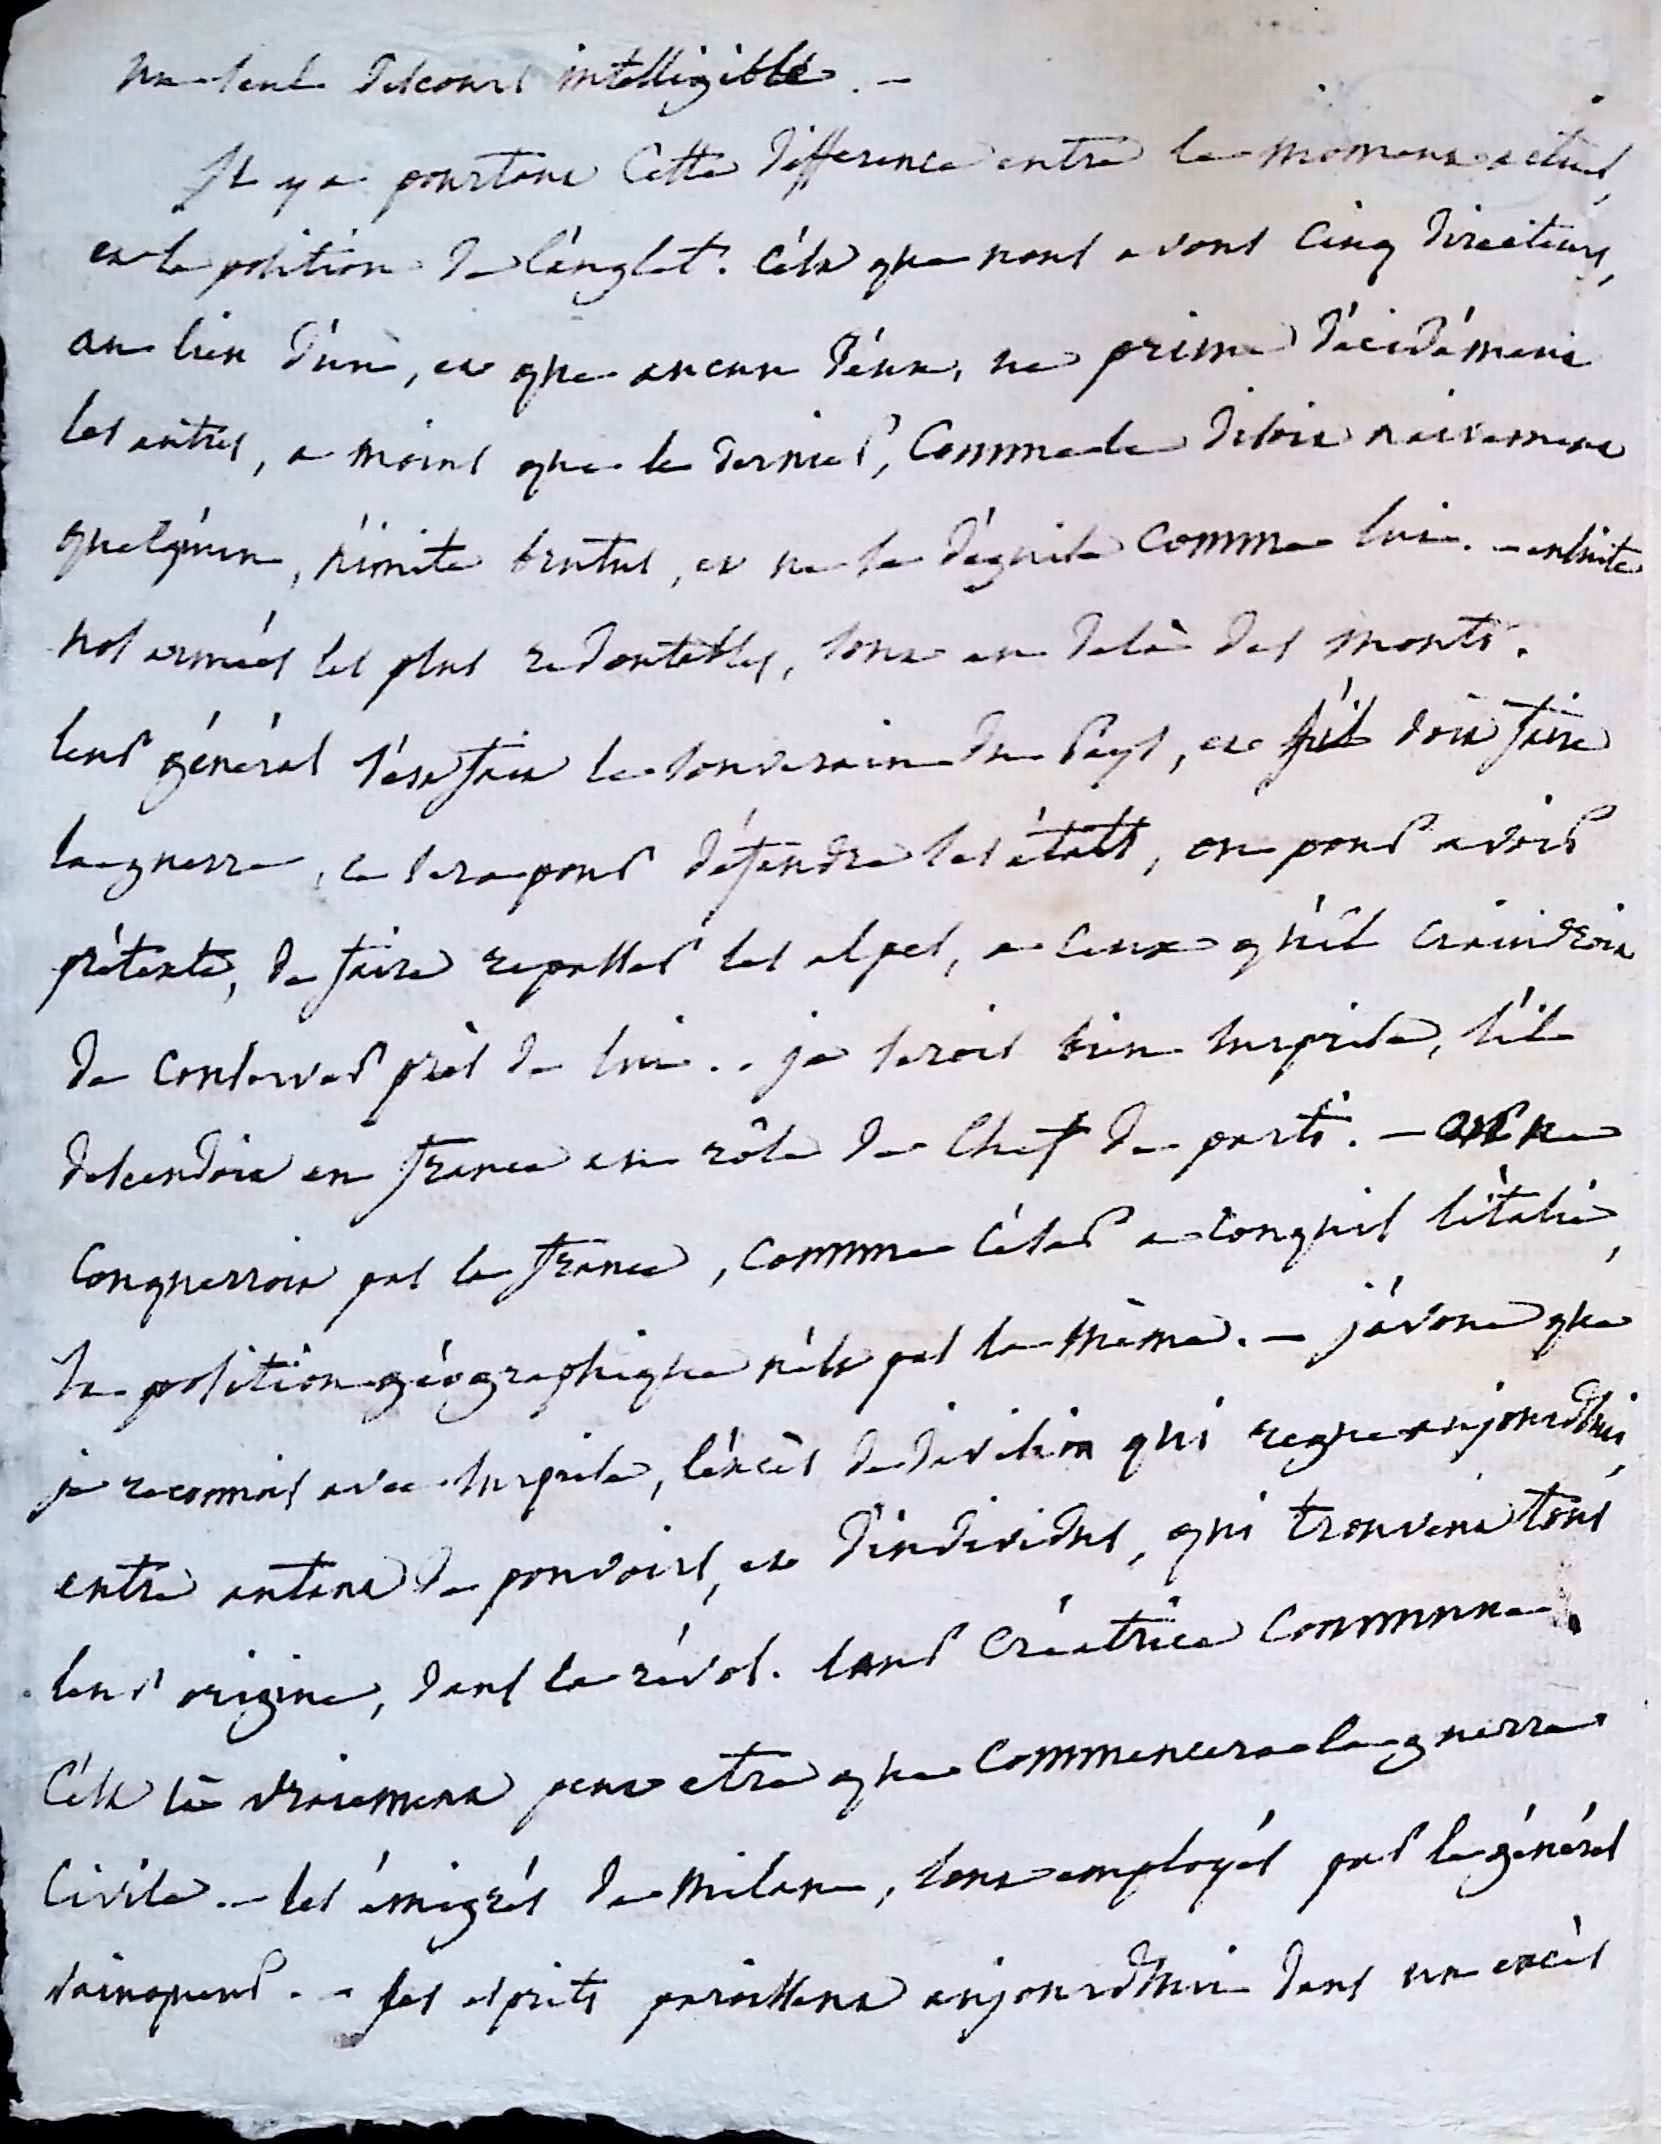 un seul discours intelligible. –
Il y a pourtant cette difference entre le moment actuel,
et la position de l'anglet. c'est que nous avons cinq directeurs,
au lieu d'un, et que aucun d'eux, ne prime décidément
les autres, a moins que le dernier, comme le disoit naivement
quelqu'un, n'imite brutus, et ne se déguise comme lui. – ensuite
nos armées les plus redoutables, sont au delà des monts.
leur général s'est fait le souverain du pays, et s'il doit faire
la guerre, ce sera pour défendre ses états, ou pour avoir
prétexte, de faire repasser les alpes, a ceux qu'il craindroit
de conserver près de lui. . je serois bien surprise, s'il
descendoit en france au rôle de chef de parti. – on ne
conquerroit pas la france, comme César a conquis l'italie,
sa position géographique n'est pas la même. – j'avoue que
je reconnois avec surprise, l'éxcès de division qui regne aujourdhui,
entre autant de pouvoirs, et d'individus, qui trouvent tous
leur origine, dans la révol. leur créatrice commune.
C'est là vraiment peut etre que commencera la guerre
civile. – les émigrés de milan, sont employés par le général
vainqueur. – les esprits paroissent aujourdhui dans un excès